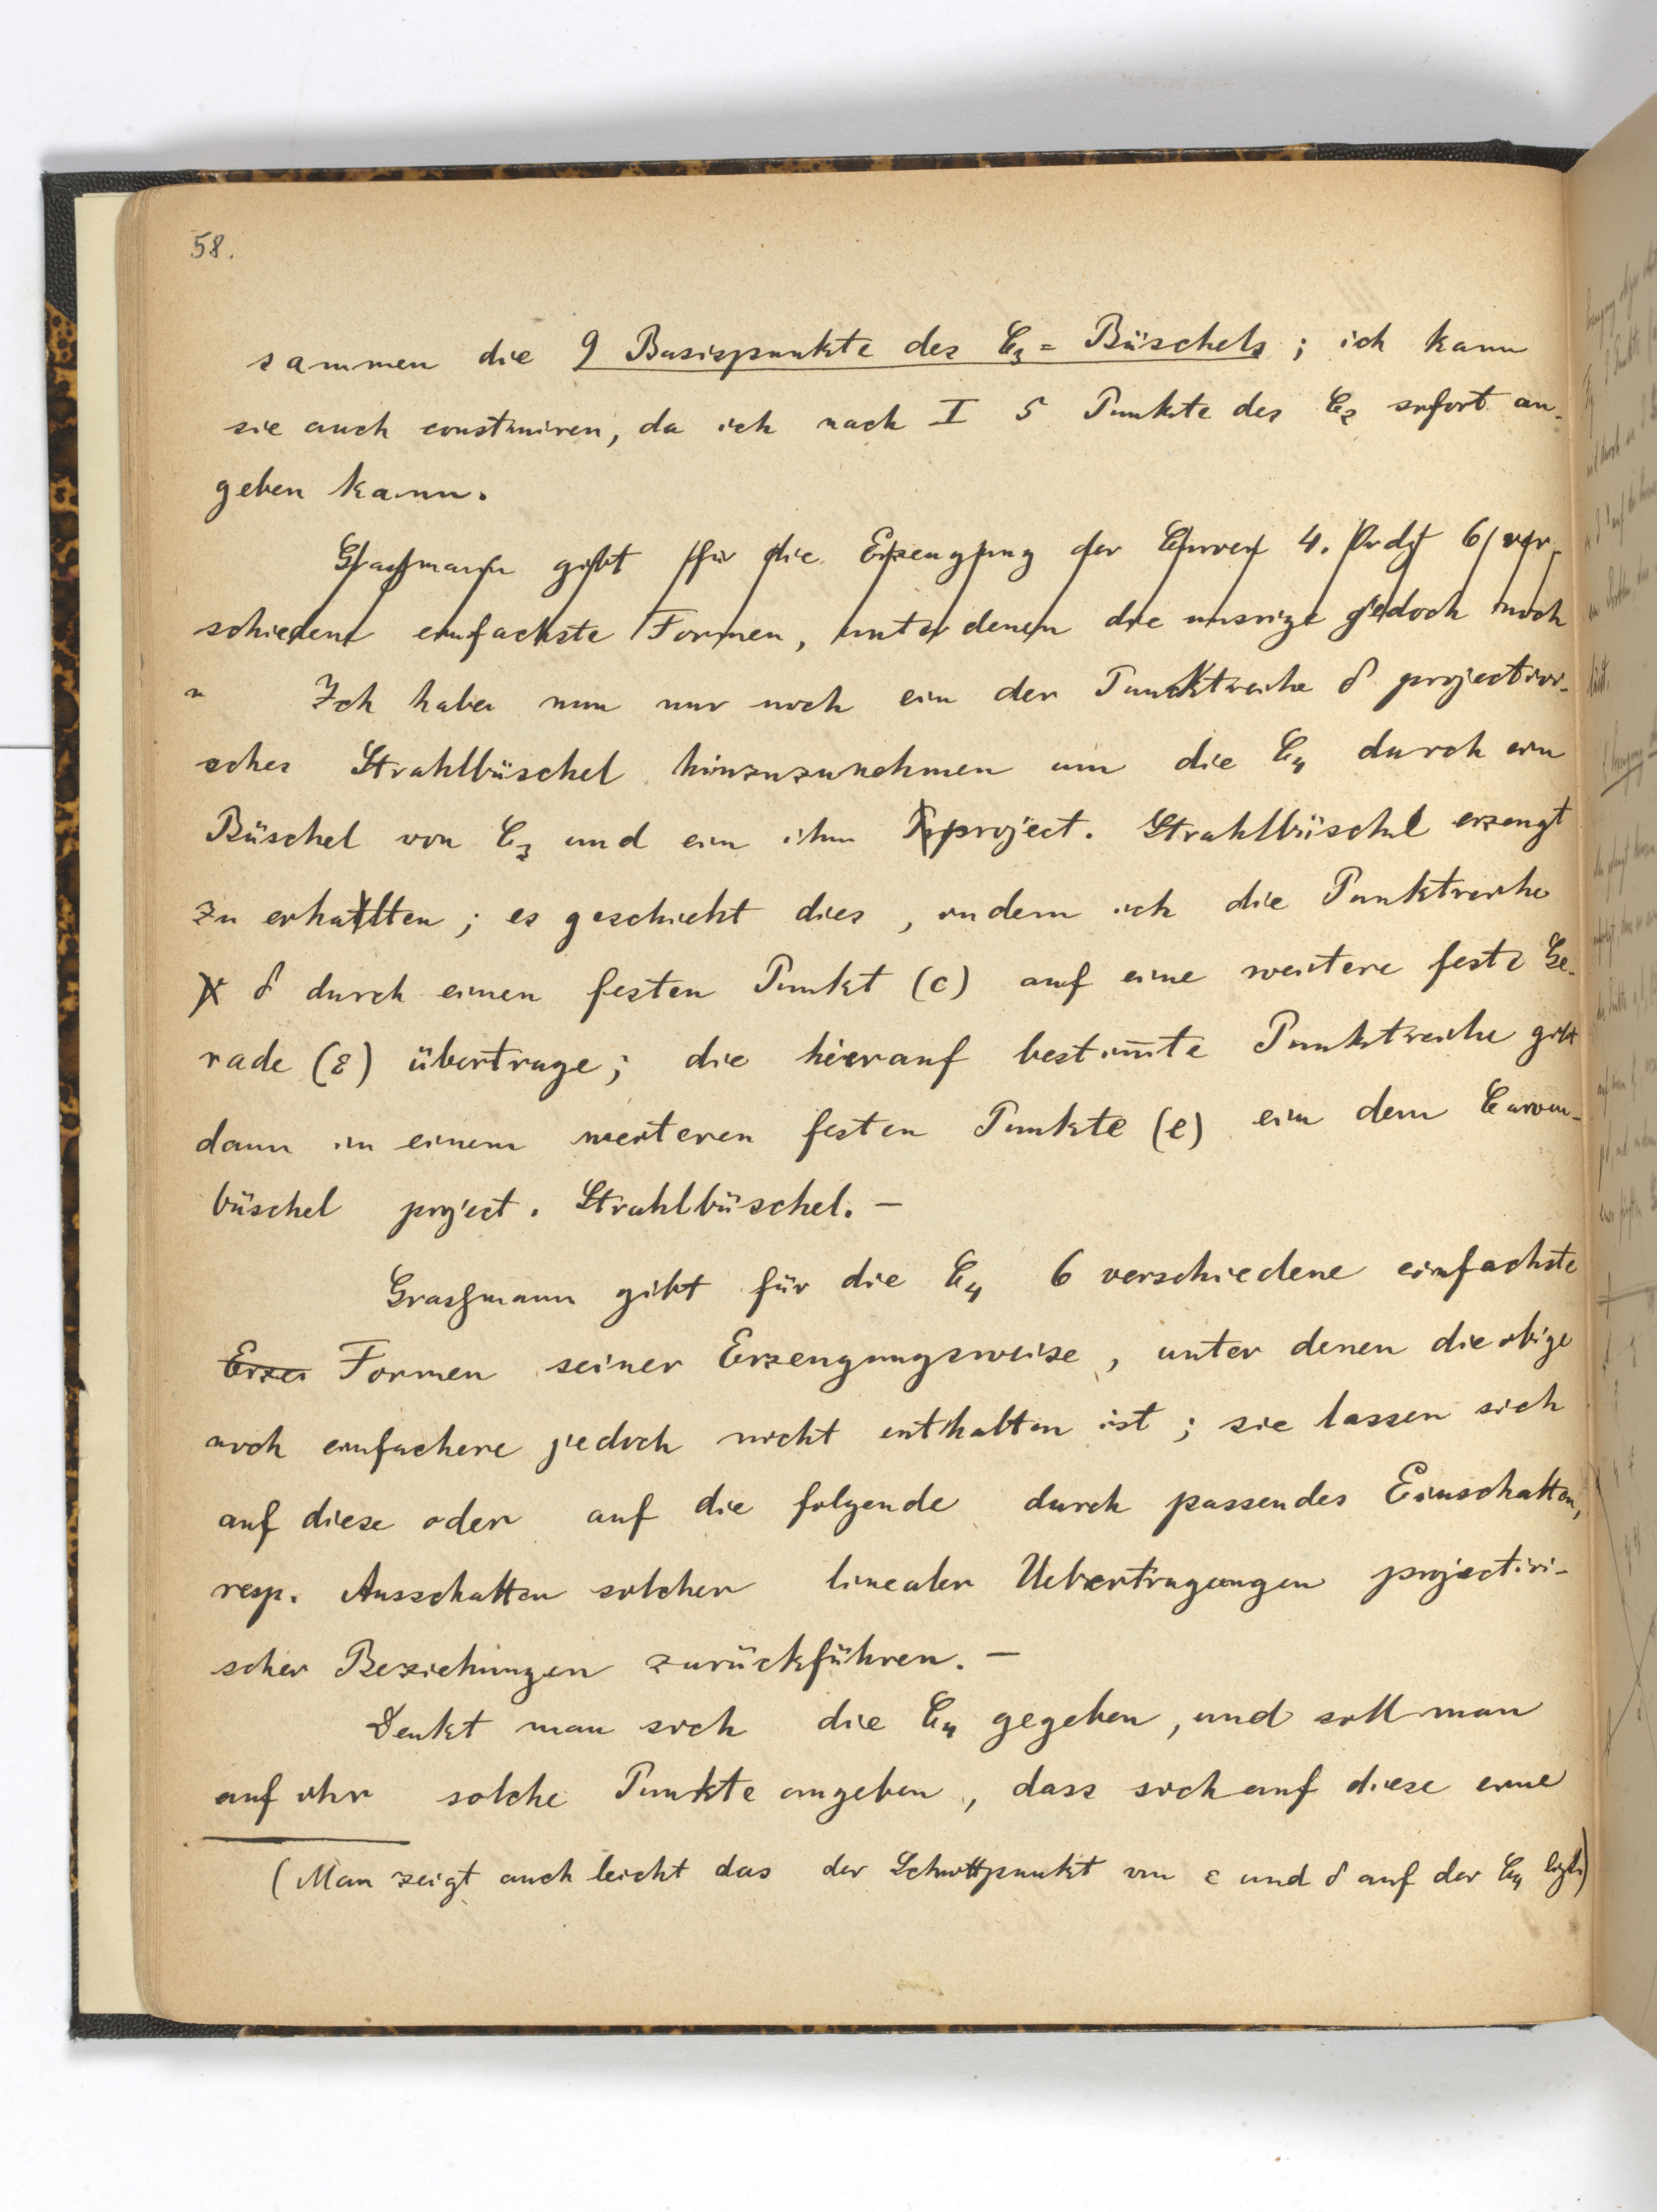 58.
sammen die 9 Basispunkte des C₃ = Büschels ; ich kann
sie auch construiren, da ich nach I 5 Punkte des C₂ sofort an-
geben kann.
Grassmann gibt für die Erzeugung der Curven 4. Ordg 6 ver-
schiedene einfachste Formen, unter denen die unsrige jedoch noch
Ich habe nun nur noch ein der Punktreihe δ projectivi-
sches Strahlbüschel hinzuzunehmen um die C₄ durch ein
Büschel von C₃ und ein ihm project. Strahlbüschel erzeugt
zu erhalten ; es geschieht dies , indem ich die Punktreihe
δ durch einen festen Punkt (c) auf eine weitere feste Ge-
rade (ε) übertrage ; die hierauf bestim̄te Punktreihe gibt
dann in einem weiteren festen Punkte (e) ein dem Curven-
büschel project. Strahlbüschel. —
Grassmann gibt für die C₄ 6 verschiedene einfachste
Erze Formen seiner Erzeugungsweise , unter denen die obige
noch einfachere jedoch nicht enthalten ist ; sie lassen sich
auf diese oder auf die folgende durch passendes Einschalten,
resp. Ausschalten solcher linealer Uebertragungen projectivi-
scher Beziehungen zurückführen. —
Denkt man sich die C₄ gegeben , und soll man
auf ihr solche Punkte angeben , dass sich auf diese eine
(Man zeigt auch leicht das der Schnittpunkt von ε und δ auf der C₄ liegt.)